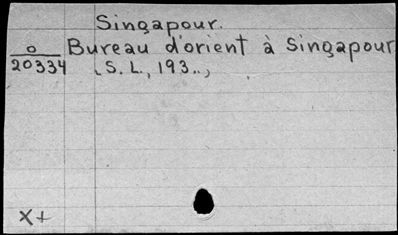 Singapour.
o
20334 Bureau d'orient à Singapour
(S. L., 193..,
X+